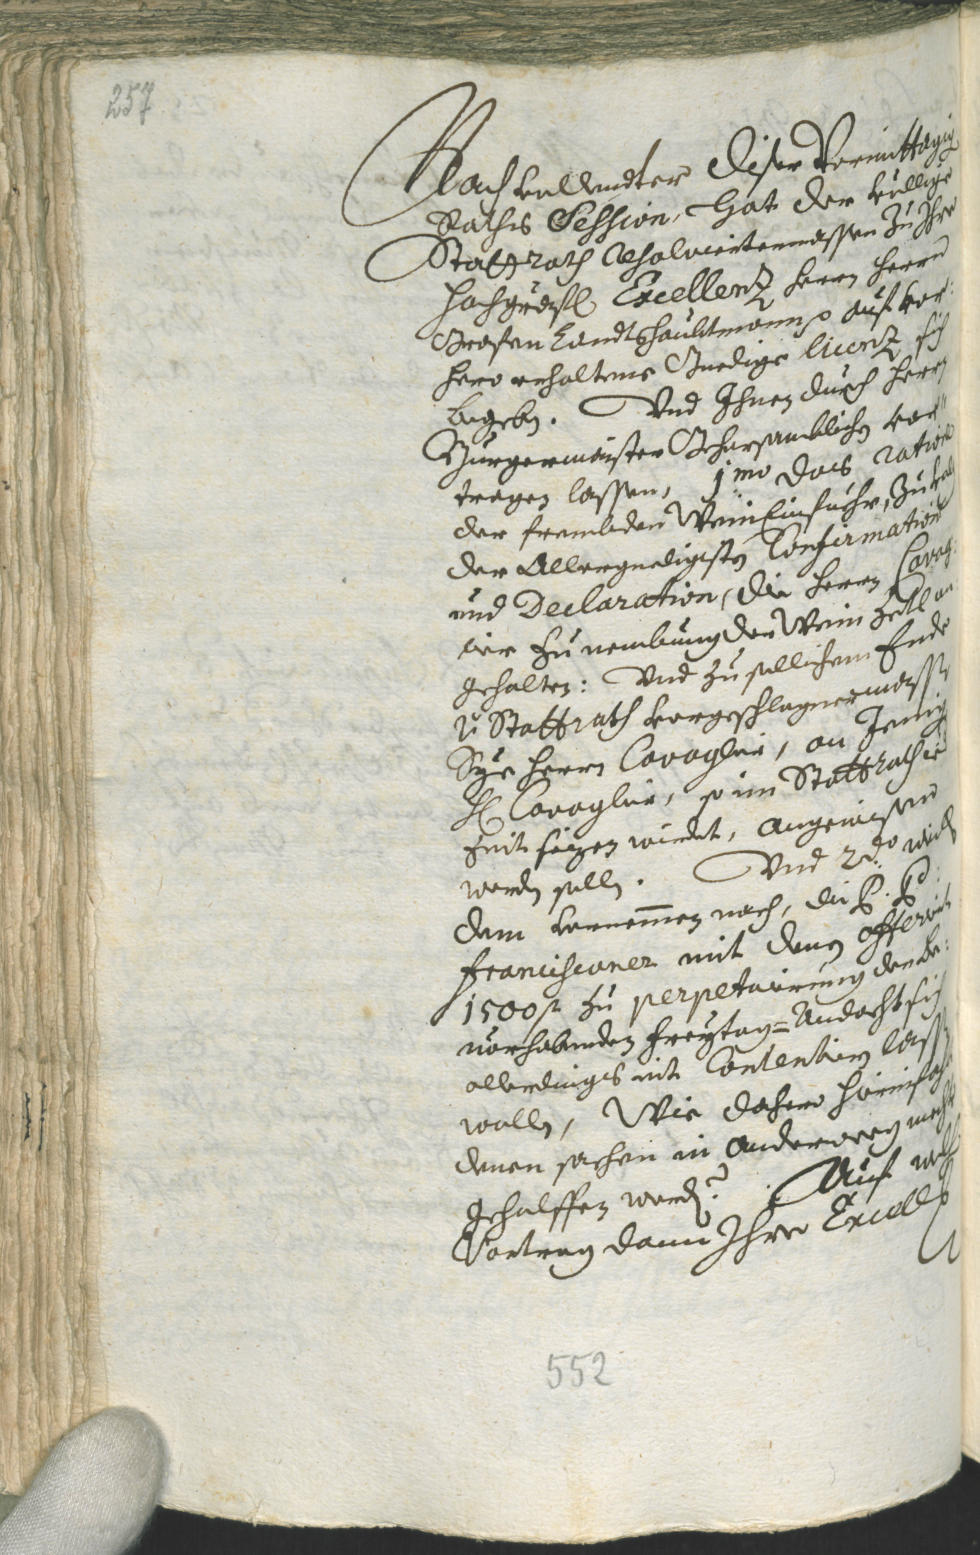 257
Nach vollendter diser Vormittägig
Raths Session, hat der völlige
Stattrath resolviertermassen zu Ihro
hochgräfl Excellenz herrn herrn
Grafen Landtshaubtmann auf vor-
hero erhaltene Gnedige licenz sich
begeben. Und Ihnen durch herrn
Burgermaister Gehorsamblichen vor-
tragen lassen, 1mo das ratione
der frembden Wein Einfuhr, zu
der Allergnedigsten Confirmation
und Declaration, die herrn Cavag-
lier zu nembung der Wein zetl an
gehalten: Und zu sollichem Ende
Stattrath vorgeschlagnermassen
Sye herrn Cavaglier, an Jenig
H Cavaglier, so im Stattrath ie
Zeit sizen wirdet, angewisen
werden sollen. Und 2do weill
dem vernemmen nach, die P. P.
Franciscaner mit denen offerirten
1500 f zu perpetuirung der be-
vorhabenden Freytag-Andacht sich
allerdings nit Contentiern lassen
wollen, Wie dahero hierinfahls
denen sachen in Anderweeg mecht
geholffen werden? Auf welch
Vortrag dann Ihro Excell
552